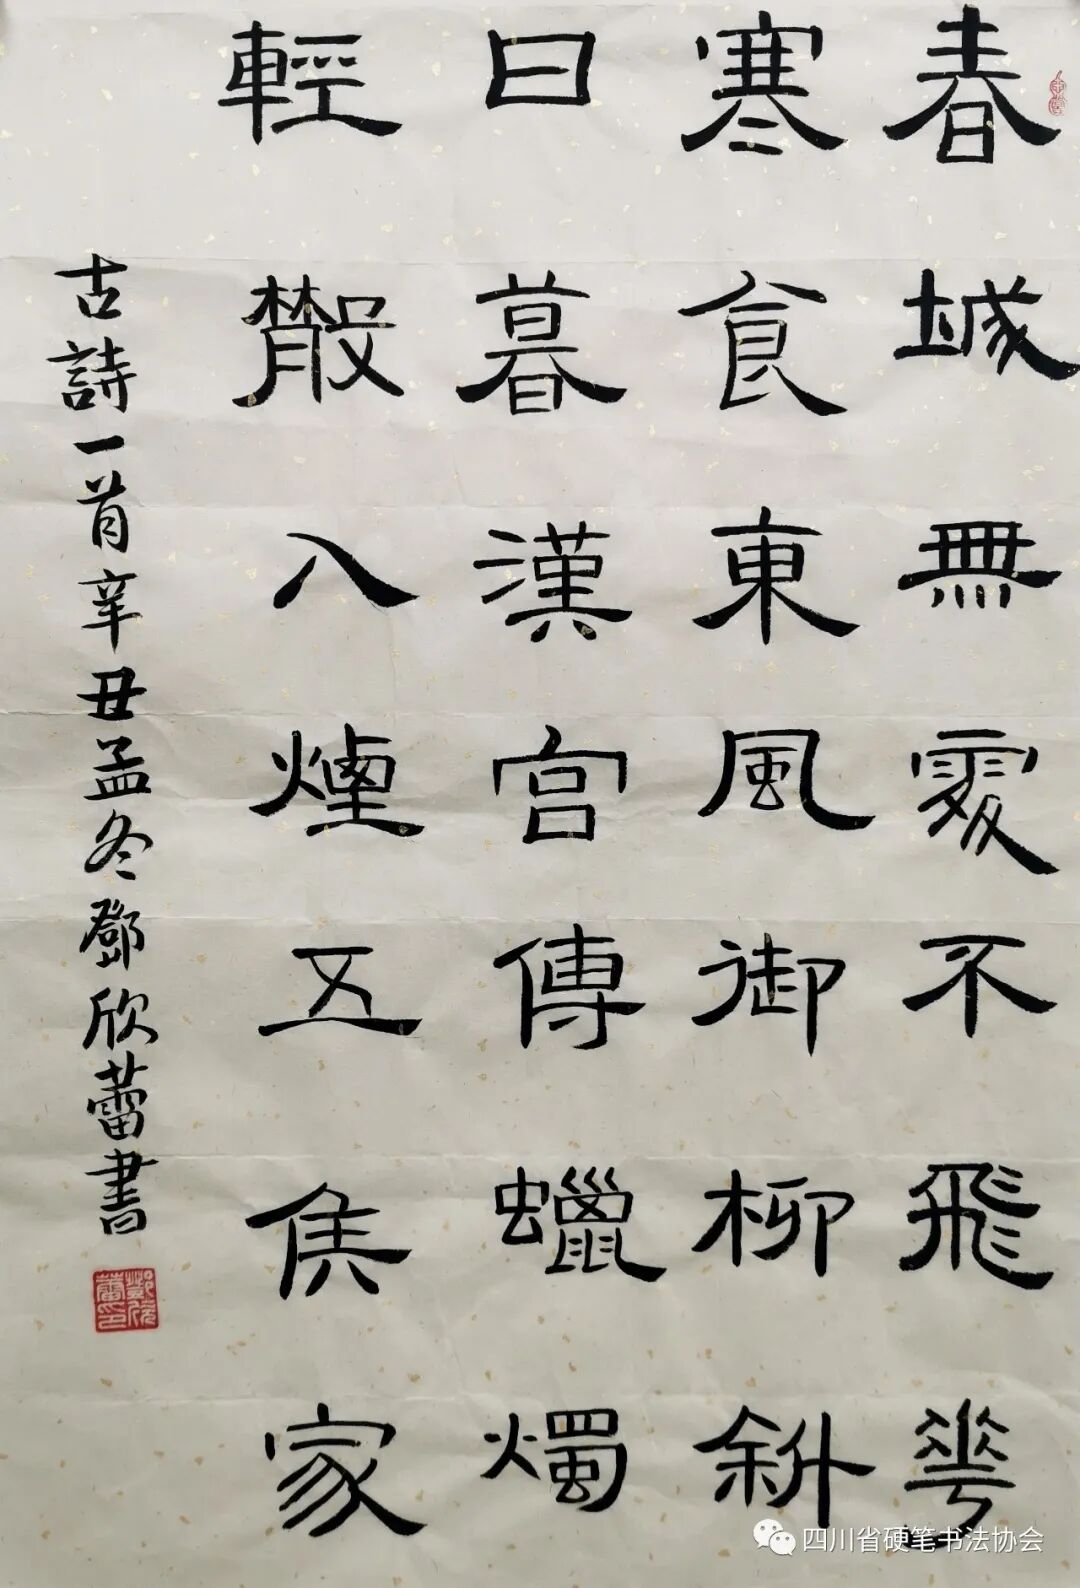 春城無處不飛華
寒食東風御柳斜
日暮漢宮傳蠟燭
輕散入煙五侯家
古詩一首辛丑孟冬鄧欣蕾書
鄧欣蕾印
四川省硬笔书法协会